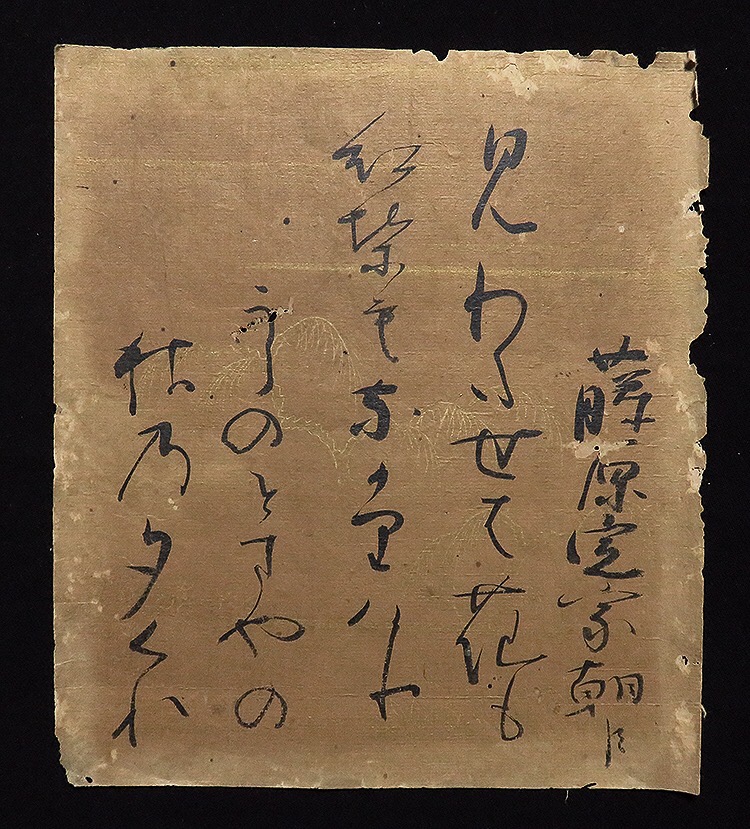 藤原定家朝臣
見わたせは花も
紅葉もなかりけり
うらのとまやの
秋乃夕くれ